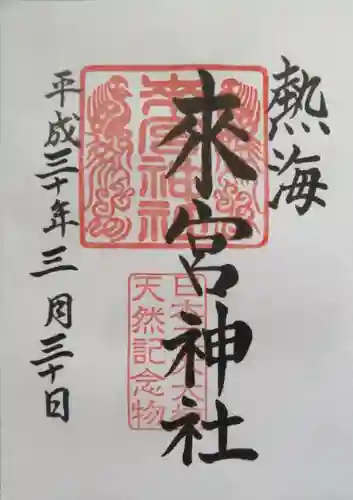 熱海
來宮神社
平成三十年三月三十日
來宮神社
日本
天然記念物